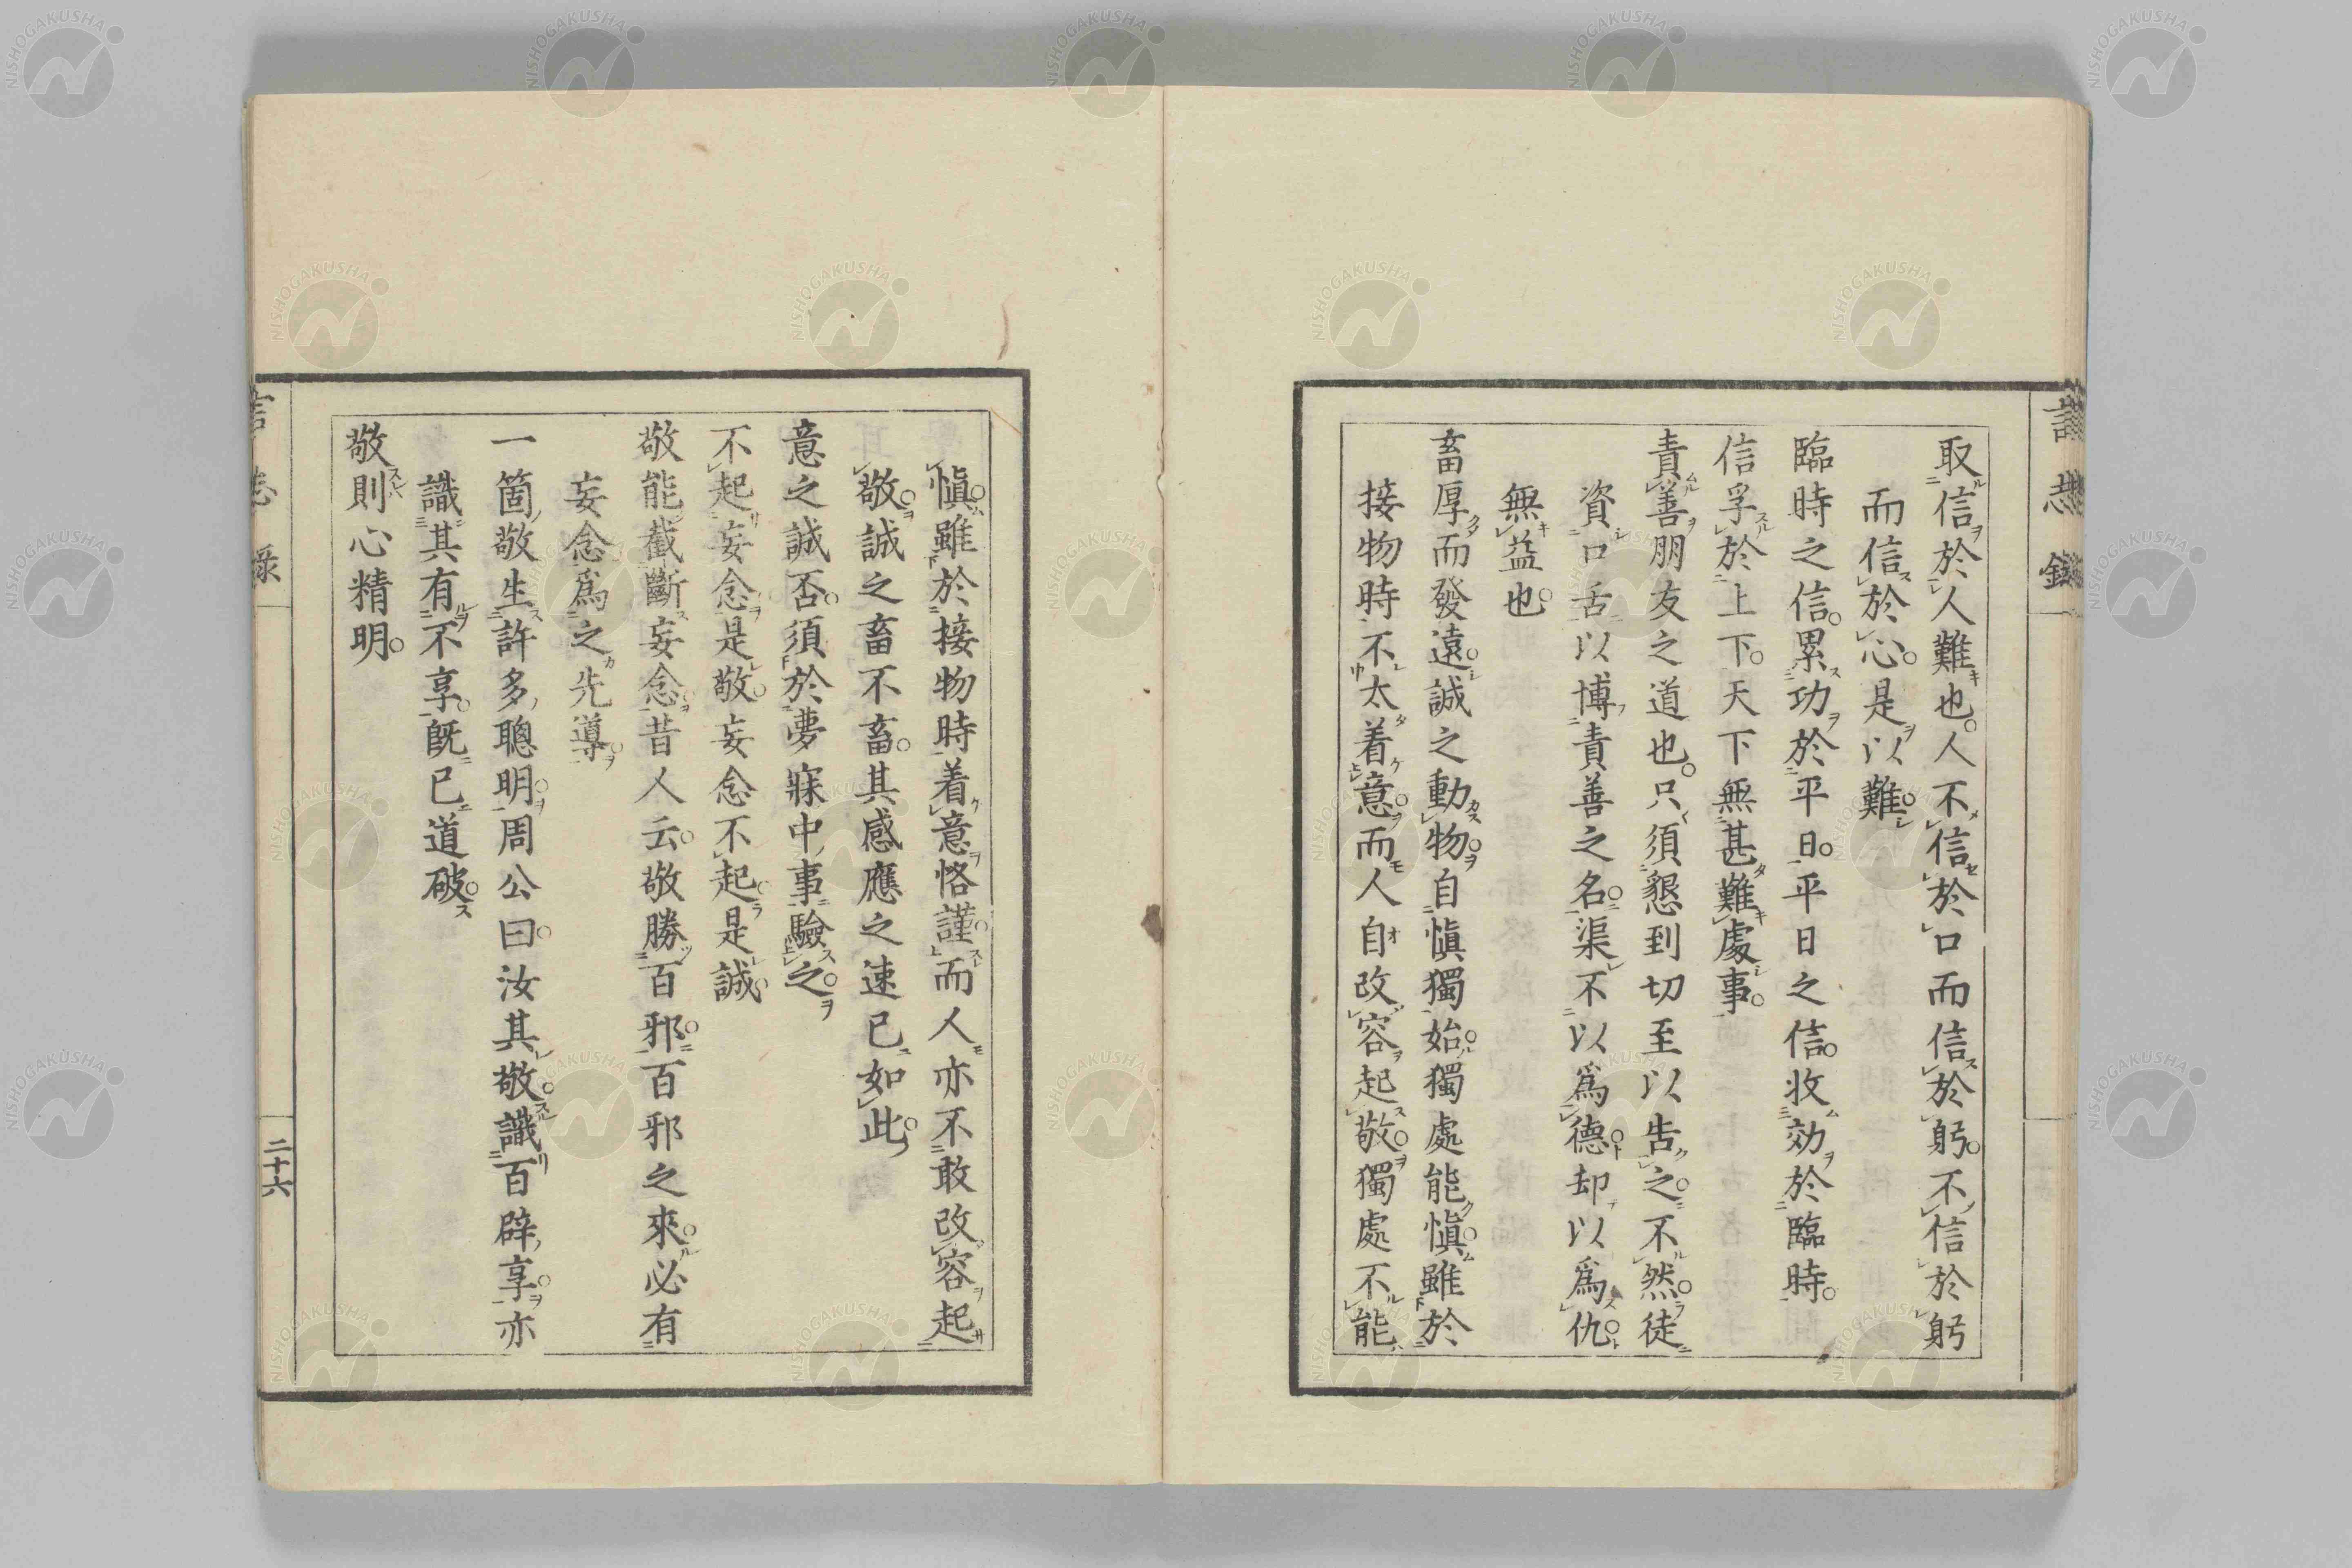 言志錄
取信於人難也。人不信於口而信於躬。不信於躬
而信於心。是以難。
臨時之信。累功於平日。平日之信。收効於臨時。
信孚於上下。天下無甚難處事。
責善朋友之道也。只須懇到切至以告之。不然徒
資口舌以博責善之名。渠不以爲德。却以爲仇。
無益也。
畜厚而發遠。誠之動物。自愼獨始。獨處能愼。雖於
接物時不太着意。而人自改容起敬。獨處不能
愼。雖於接物時着意恪謹。而人亦不敢改容起
敬。誠之畜不畜。其感應之速已如此。
意之誠否。須於夢寐中事驗之。
不起妄念是敬。妄念不起。是誠。
敬能截斷妄念。昔人云。敬勝百邪。百邪之來。必有
妄念爲之先導。
一箇敬生許多聰明。周公曰。汝其敬。識百辟享。亦
識其有不享。旣已道破。
敬則心精明。
言志錄
二十六
NISHOGAKUSHA